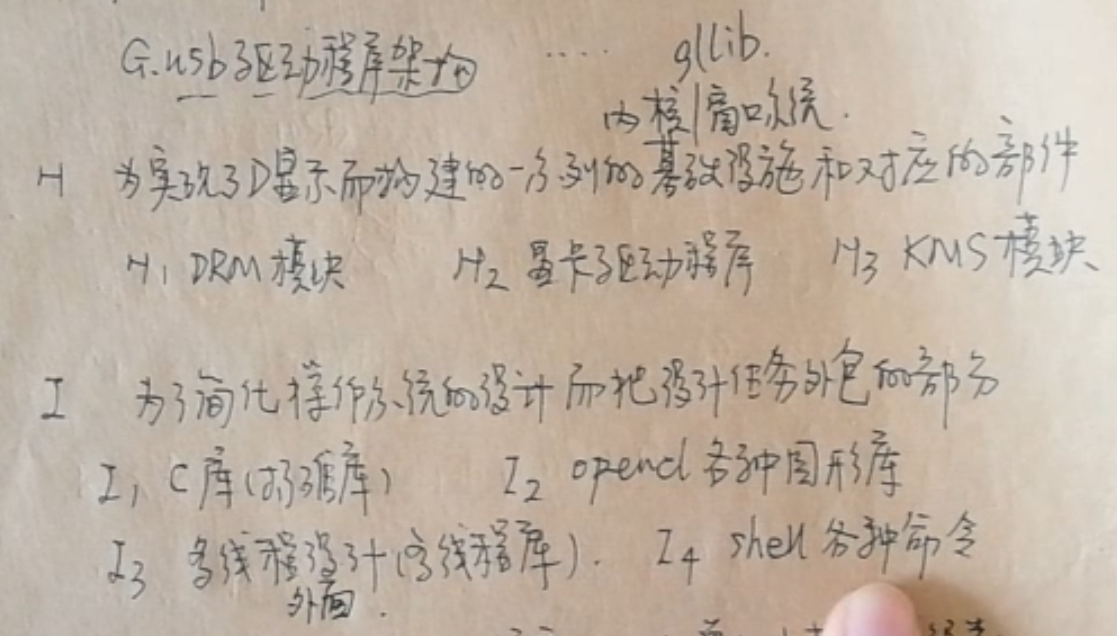 G.usb驱动程序架构 ···· gllib.
内核|窗口系统.
H 为实现3D显示而构建的一系列的基础设施和对应的部件
H1 DRM模块 H2 显卡驱动程序 H3 KMS模块
I 为了简化操作系统的设计而把设计任务外包的部分
I1 C库(标准库) I2 opencl各种图形库
I3 多线程设计(多线程库). I4 shell各种命令
外面.